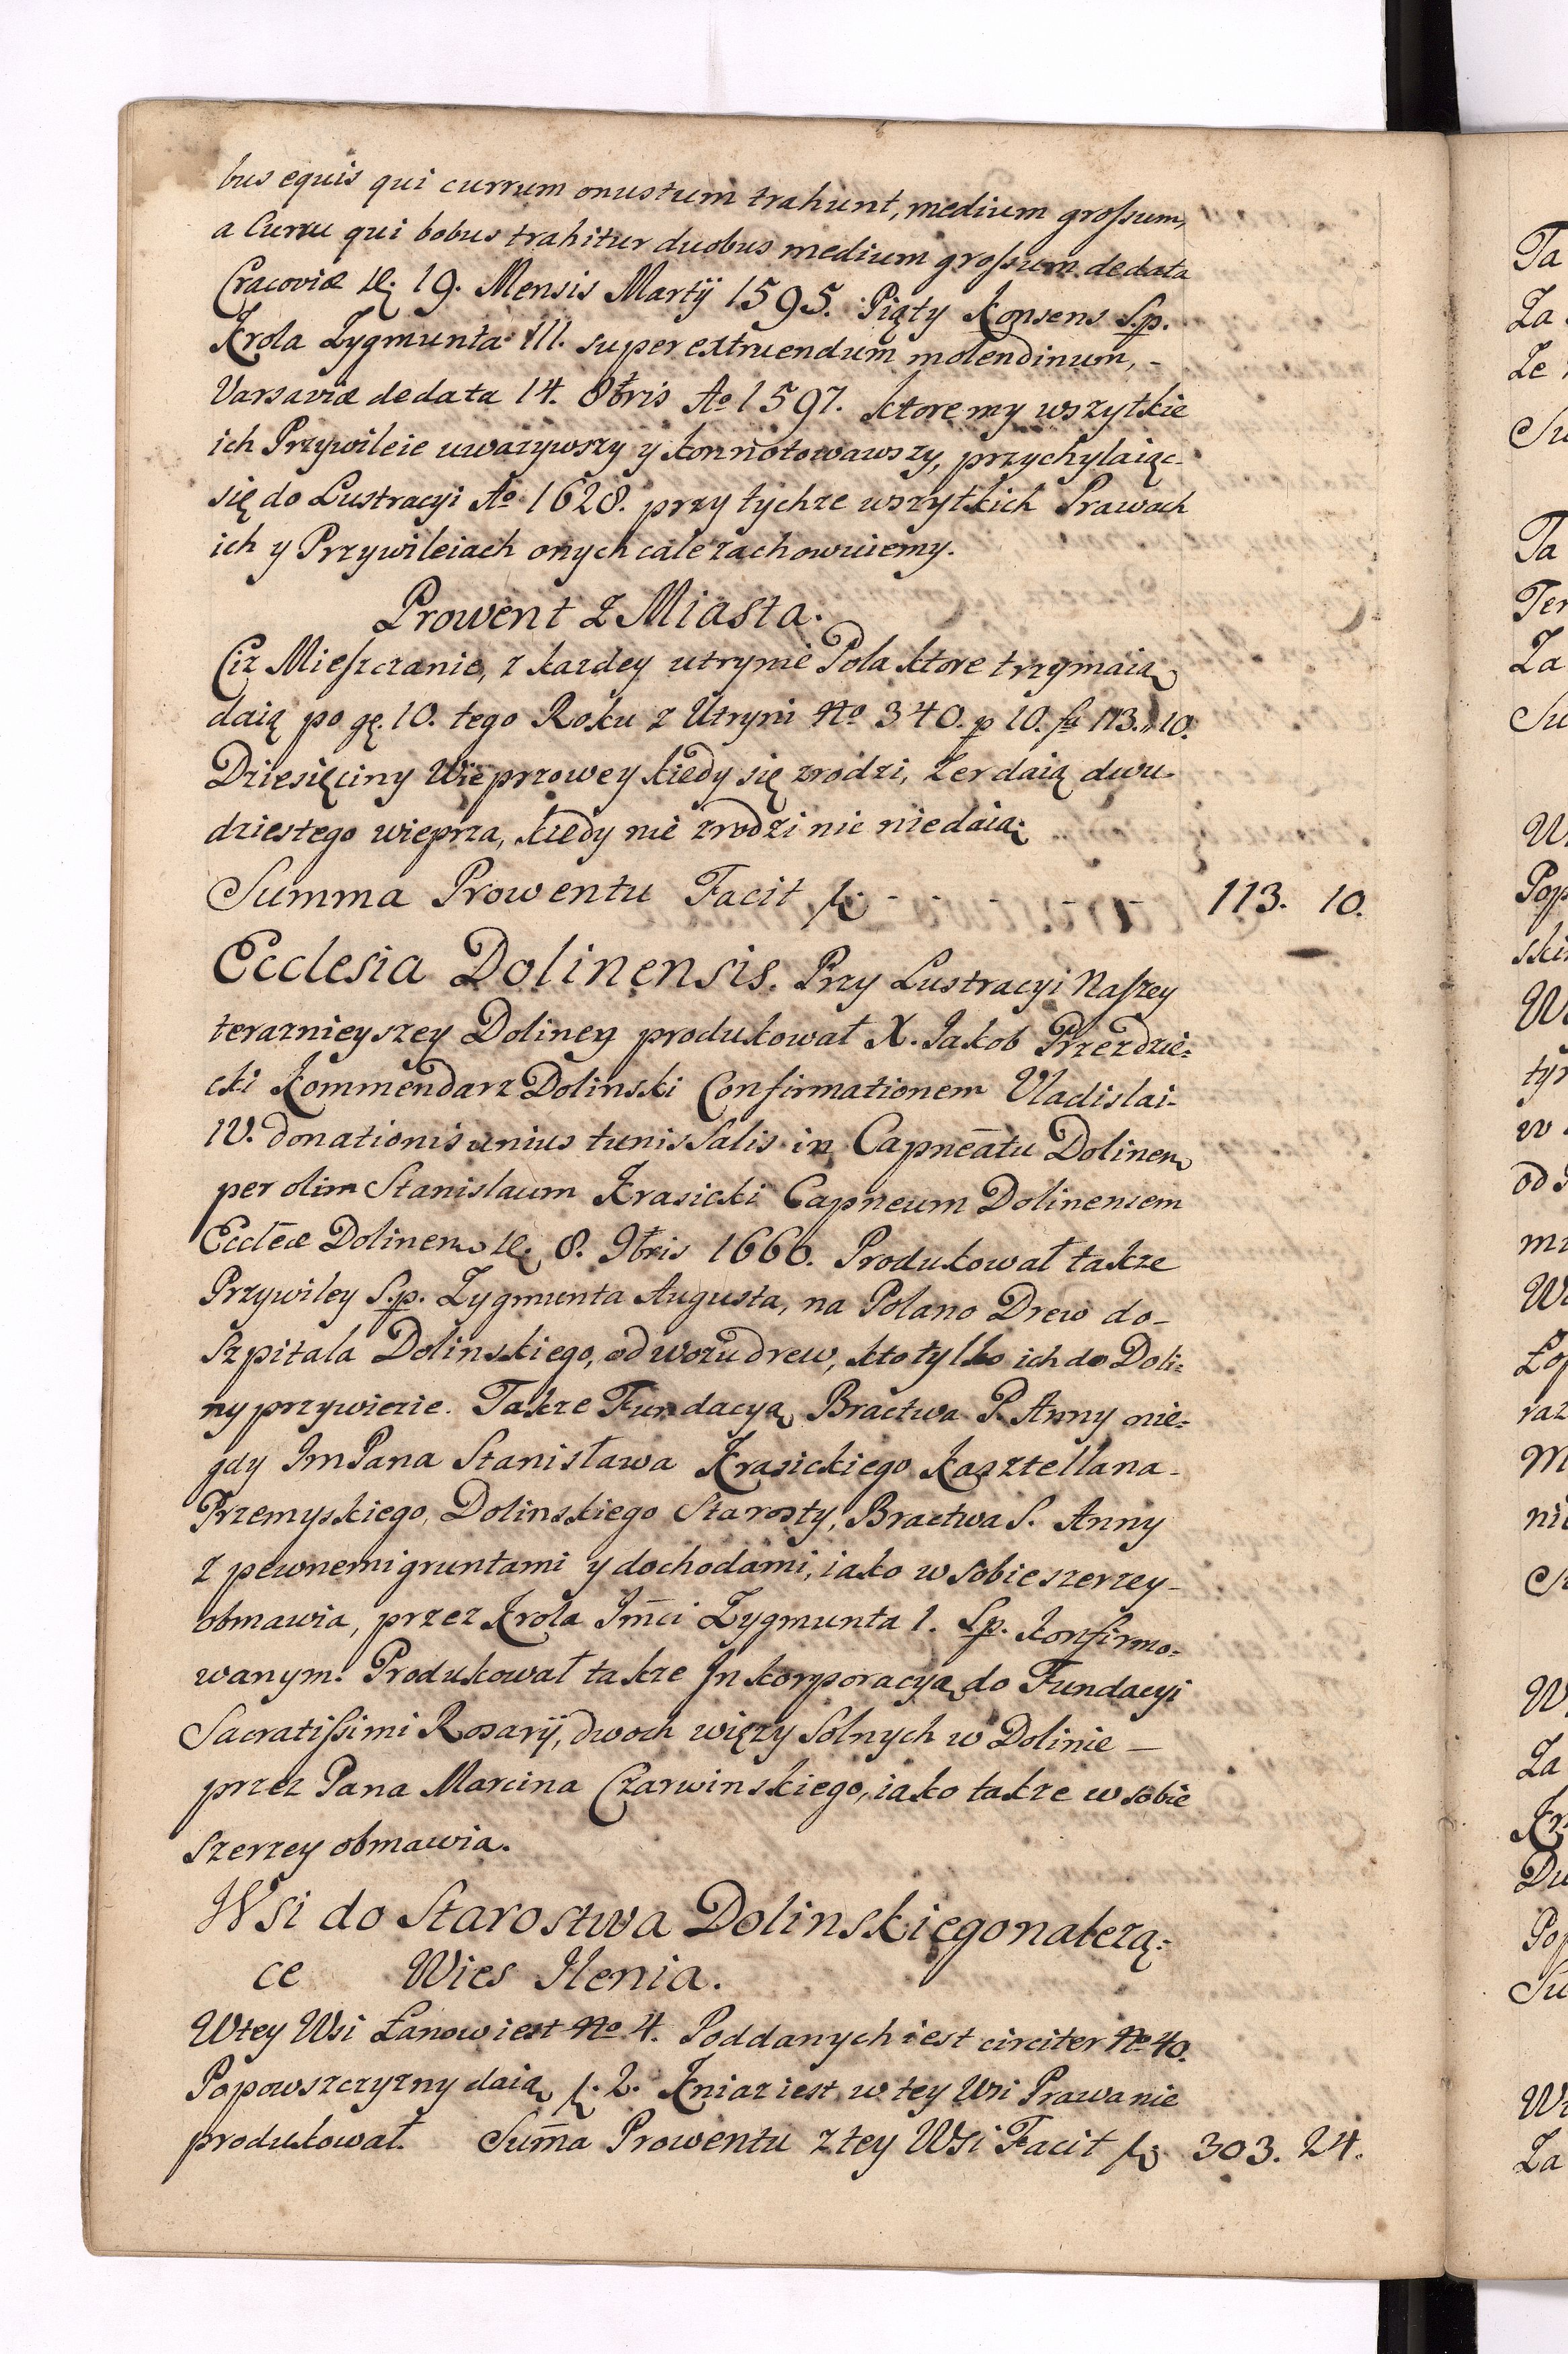 bus equis qui currum onustum trahunt, medium grossum,
a Curru qui bobus trahitur duobus medium grossum de data
Cracoviæ 19. Mensis Martÿ 1595. Piąty Konsens S.p.
Krola Zygmunta III. super extruendum molendinum, -
Varsaviæ de data 14. 8bris Ao 1597. ktore my wszytkie
ich Przywileie uwazywszy y konnotowawszy, przychylaiąc-
się do Lustracyi Ao 1628. przy tychze wszytkich Prawach
ich y Przywileiach onych cale zachowuiemy.
Prowent z Miasta.
Ciz Mieszczanie, z kazdey utrynie Pola ktore trzymaią
daią po gę. 10. tego Roku z Utryni No 340. p 10. fa 113.,, 10.
Dziesięciny Wieprzowey kiedy się zrodzi, Zer daią dwu-
dziestego wieprza, kiedy nie zrodzi nic nie daią.
Summa Prowentu Facit f. - - - - - - 113. 10.
Ecclesia Dolinensis. Przy Lustracyi Naszey
teraznieyszey Doliney produkował X. Jakob Przezdzie=
cki Kommendarz Dolinski Confirmationem Vladislai-
IV. donationis unius tunis Salis in Capneatu Dolinen
per olim Stanislaum Krasicki Capneum Dolinensem
Eccleæ Dolinen 8. 9bris 1660. Produkował takze
Przywiley S.p. Zygmunta Augusta, na Polano Drew do-
Szpitala Dolinskiego, od wozu drew, kto tylko ich do Doli=
ny przywiezie. Takze Fundacyą Bractwa P. Anny nie=
gdy ImPana Stanisława Krasickiego Kasztellana-
Przemyskiego, Dolinskiego Starosty, Bractwa S. Anny
z pewnemi gruntami y dochodami, iako w sobie szerzey-
obmawia, przez Krola Jmci Zygmunta I. S.p. konfirmo=
wanym. Produkował takze Inkorporacyą do Fundacyi
Sacratissimi Rosarÿ, dwoch więzy Solnych w Dolinie —
przez Pana Marcina Czarwinskiego, iako takze w sobie
szerzey obmawia.
Wsi do Starostwa Dolinskiego należą=
ce Wies Ilenia.
W tey Wsi Łanow iest No 4. Poddanych iest circiter No 40.
Popowszczyzny daią f. 2. Kniaz iest w tey Wsi Prawa nie
produkował. Suma Prowentu z tey Wsi Facit f. 303. 24.